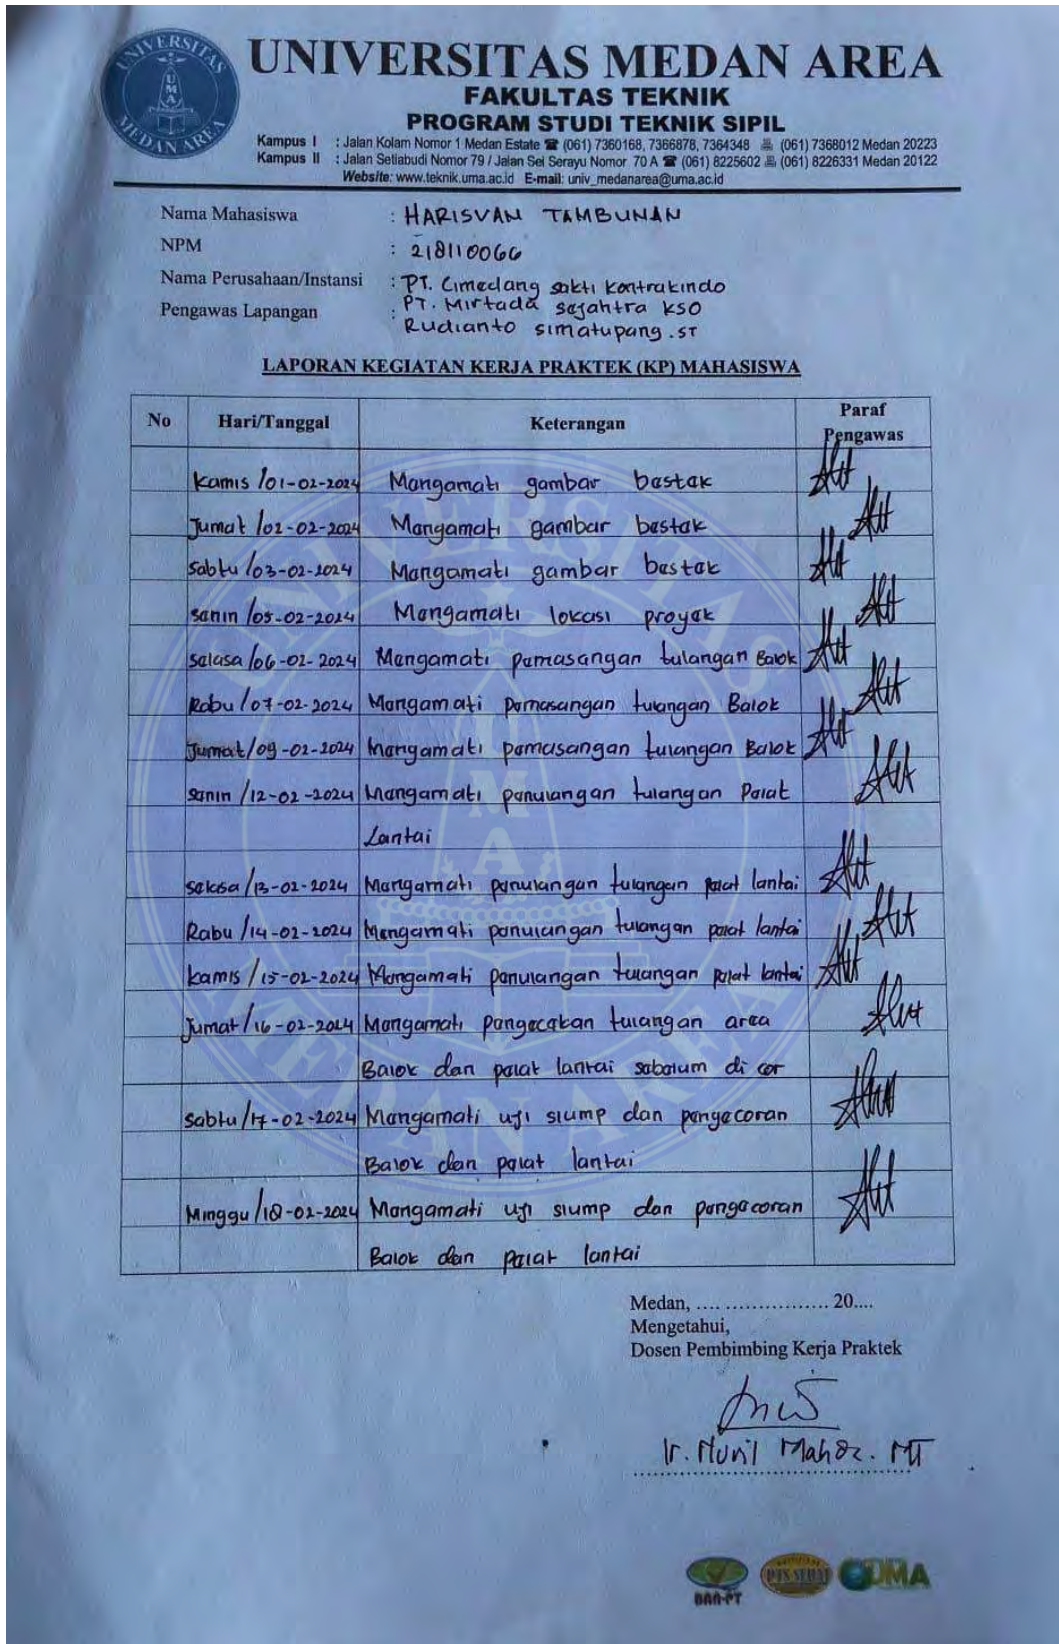 UNIVERSITAS MEDAN AREA
FAKULTAS TEKNIK
PROGRAM STUDI TEKNIK SIPIL
Kampus I : Jalan Kolam Nomor 1 Medan Estate ☎ (061) 7360168, 7366878, 7364348 (061) 7368012 Medan 20223
Kampus II : Jalan Setiabudi Nomor 79 / Jalan Sei Serayu Nomor 70 A ☎ (061) 8225602 (061) 8226331 Medan 20122
Website: www.teknik.uma.ac.id E-mail: univ_medanarea@uma.ac.id
UNIVERSITAS
UMA
MEDAN AREA
Nama Mahasiswa : HARISVAN TAMBUNAN
NPM : 218110066
Nama Perusahaan/Instansi : PT. Cimedang sakti kontrakindo
PT. Mirtada sejahtra KSO
Pengawas Lapangan : Rudianto simatupang .ST
LAPORAN KEGIATAN KERJA PRAKTEK (KP) MAHASISWA
No Hari/Tanggal Keterangan Paraf Pengawas
Kamis /01-02-2024 Mengamati gambar bestek
Jumat /02-02-2024 Mengamati gambar bestek
Sabtu /03-02-2024 Mengamati gambar bestek
Senin /05-02-2024 Mengamati lokasi proyek
Selasa /06-02-2024 Mengamati pemasangan tulangan Balok
Rabu /07-02-2024 Mengamati pemasangan tulangan Balok
Jumat /09-02-2024 Mengamati pemasangan tulangan Balok
Senin /12-02-2024 Mengamati penulangan tulangan Pelat
Lantai
Selasa /13-02-2024 Mengamati penulangan tulangan pelat lantai
Rabu /14-02-2024 Mengamati penulangan tulangan pelat lantai
Kamis /15-02-2024 Mengamati penulangan tulangan pelat lantai
Jumat /16-02-2024 Mengamati pengecekan tulangan area
Balok dan pelat lantai sebelum di cor
Sabtu /17-02-2024 Mengamati uji slump dan pengecoran
Balok dan pelat lantai
Minggu /18-02-2024 Mengamati uji slump dan pengecoran
Balok dan pelat lantai
UNIVERSITAS
UMA
MEDAN AREA
Medan, .... .................. 20....
Mengetahui,
Dosen Pembimbing Kerja Praktek
Ir. Nuril Mahda. MT
BAN-PT
UMA